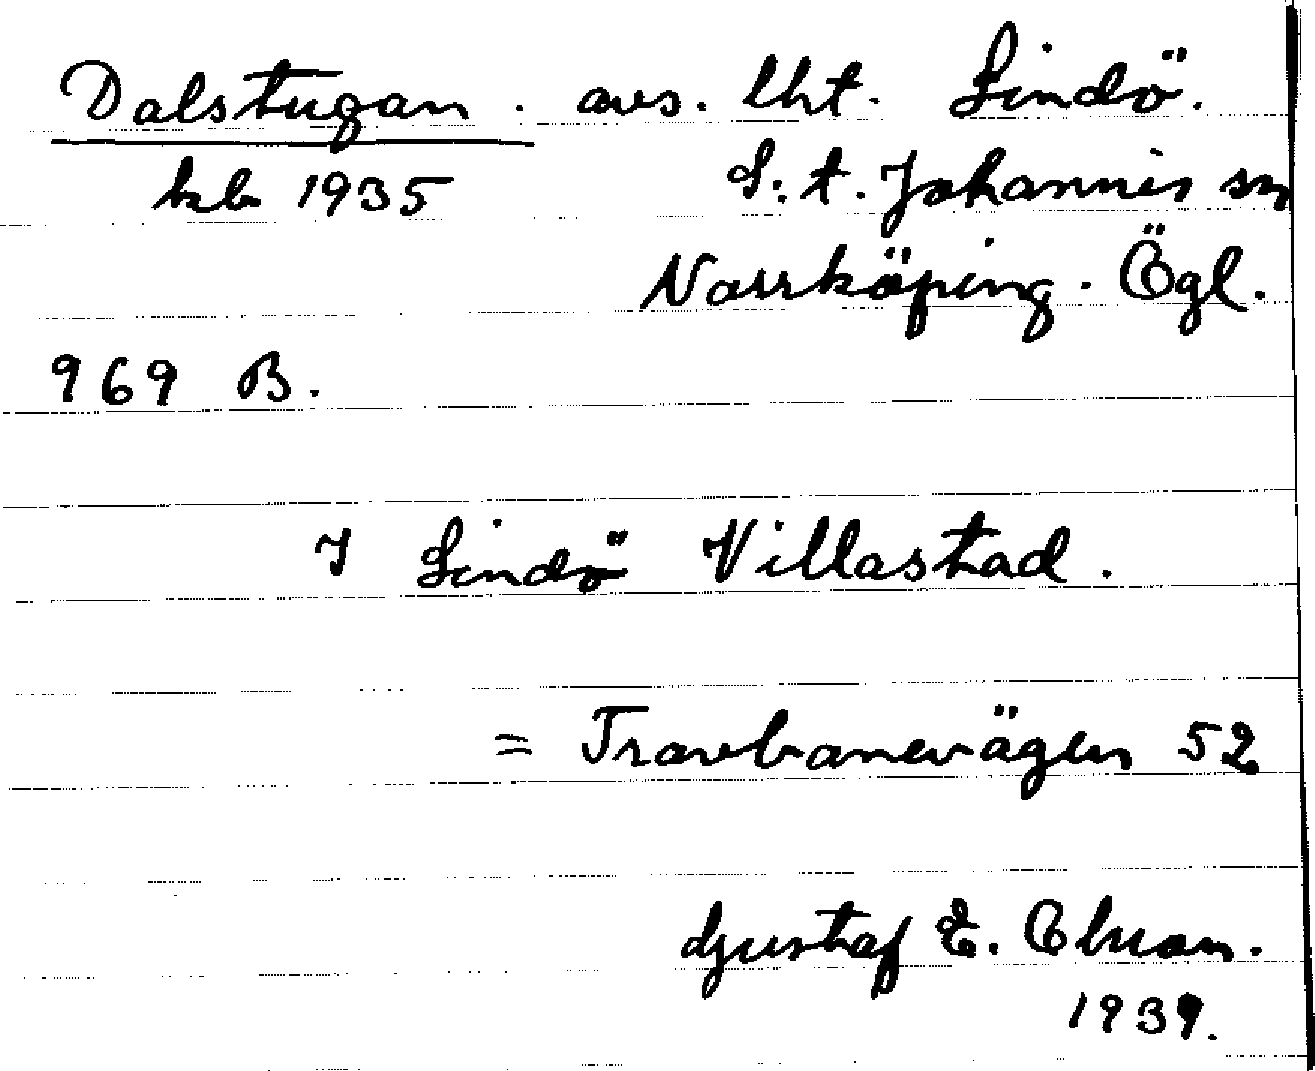 Dalstugan. avs. lht. Lindö.
kb 1935 S:t. Johannis sn
Norrköping. Ögl.
969 B.
I Lindö Villastad.
= Travbanevägen 52
Gustaf E.
1939.